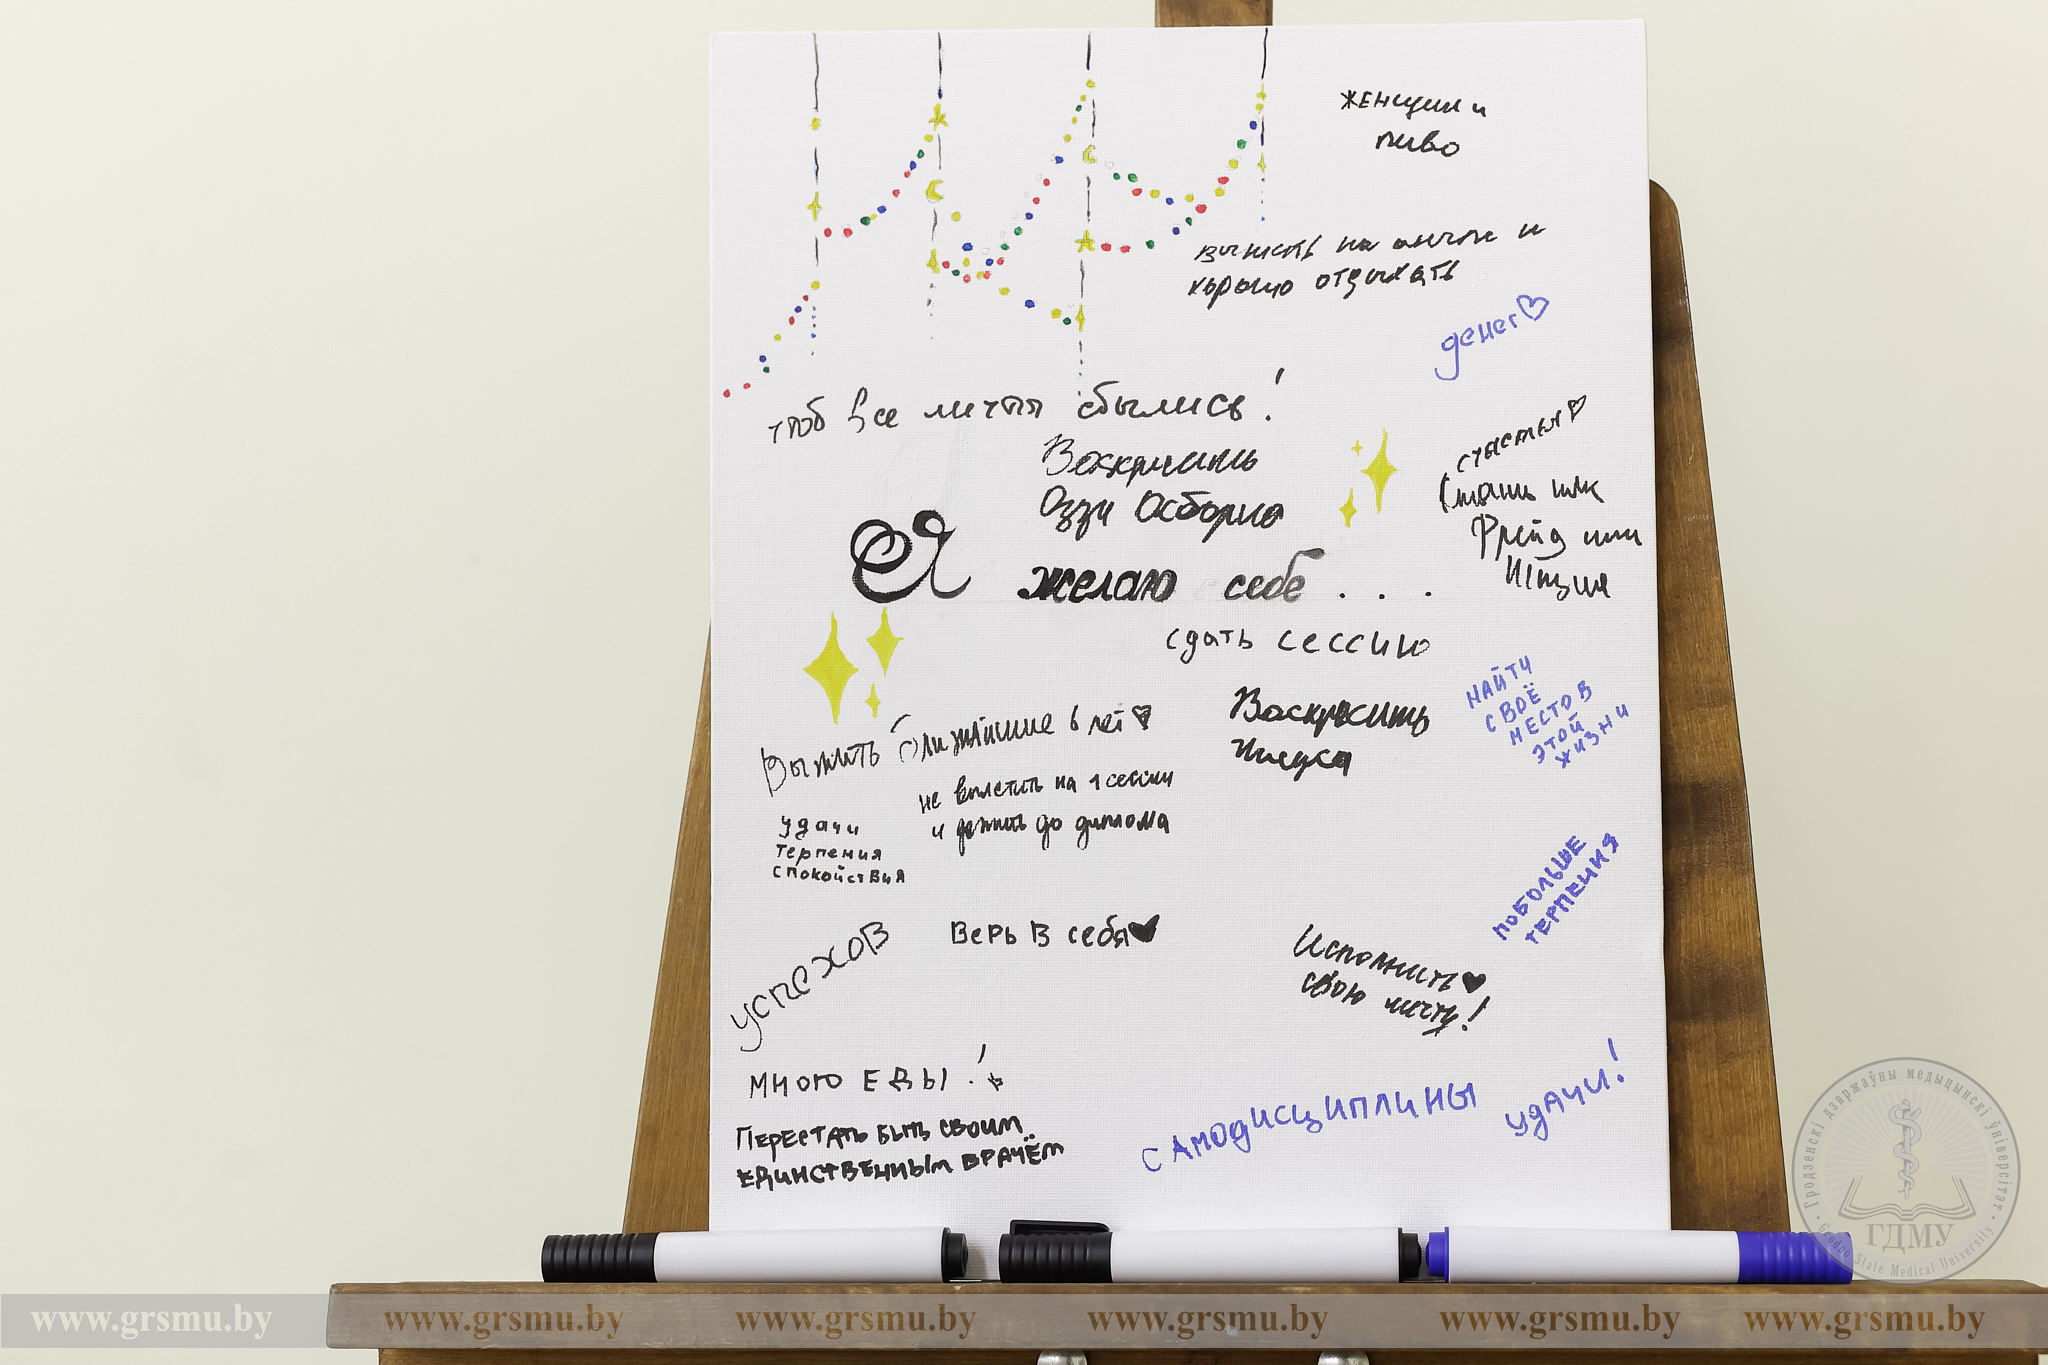 женщин и
пиво
выжить на анатм и
хорошо отдыхать
денег
чтоб все мечты сбылись!
Воскресить
Оззи Осборна
счастья
Стань как
Фрейд или
Ницше
Я желаю себе...
сдать сессию
Выжить ближайшие 6 лет
Воскресить
Иисуса
НАЙТИ
СВОЁ
МЕСТО В
ЭТОЙ
ЖИЗНИ
не вылететь на 1 сессии
и дожить до диплома
удачи
терпения
спокойствия
ПОБОЛЬШЕ
ТЕРПЕНИЯ
успехов
Верь в себя
Исполнить
свою мечту!
МНОГО ЕДЫ!
ПЕРЕСТАТЬ БЫТЬ СВОИМ
ЕДИНСТВЕННЫМ ВРАЧЁМ
САМОДИСЦИПЛИНЫ
УДАЧИ!
Гродзенскі дзяржаўны медыцынскі ўніверсітэт
ГДМУ
Grodno State Medical University
www.grsmu.by www.grsmu.by www.grsmu.by www.grsmu.by www.grsmu.by www.grsmu.by